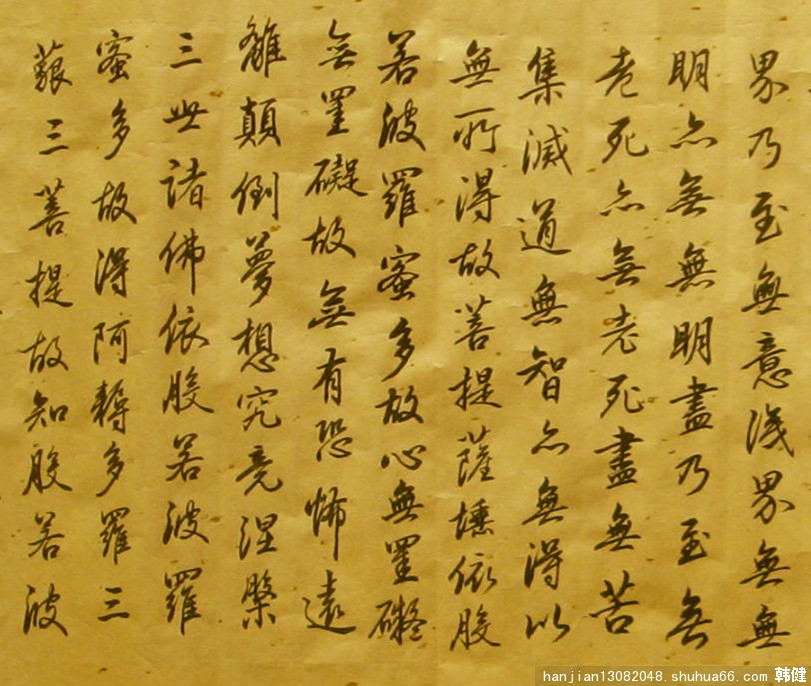 界乃至無意識界無無
明亦無無明盡乃至無
老死亦無老死盡無苦
集滅道無智亦無得以
無所得故菩提薩埵依般
若波羅蜜多故心無罣礙
無罣礙故無有恐怖遠
離顛倒夢想究竟涅槃
三世諸佛依般若波羅
蜜多故得阿耨多羅三
藐三菩提故知般若波
hanjian13082048.shuhua66.com 韩健